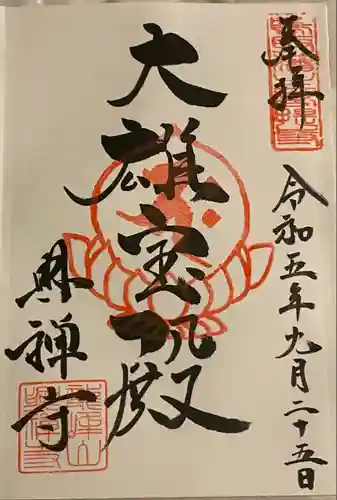 奉拝
令和五年九月二十五日
大雄宝殿
興禅寺